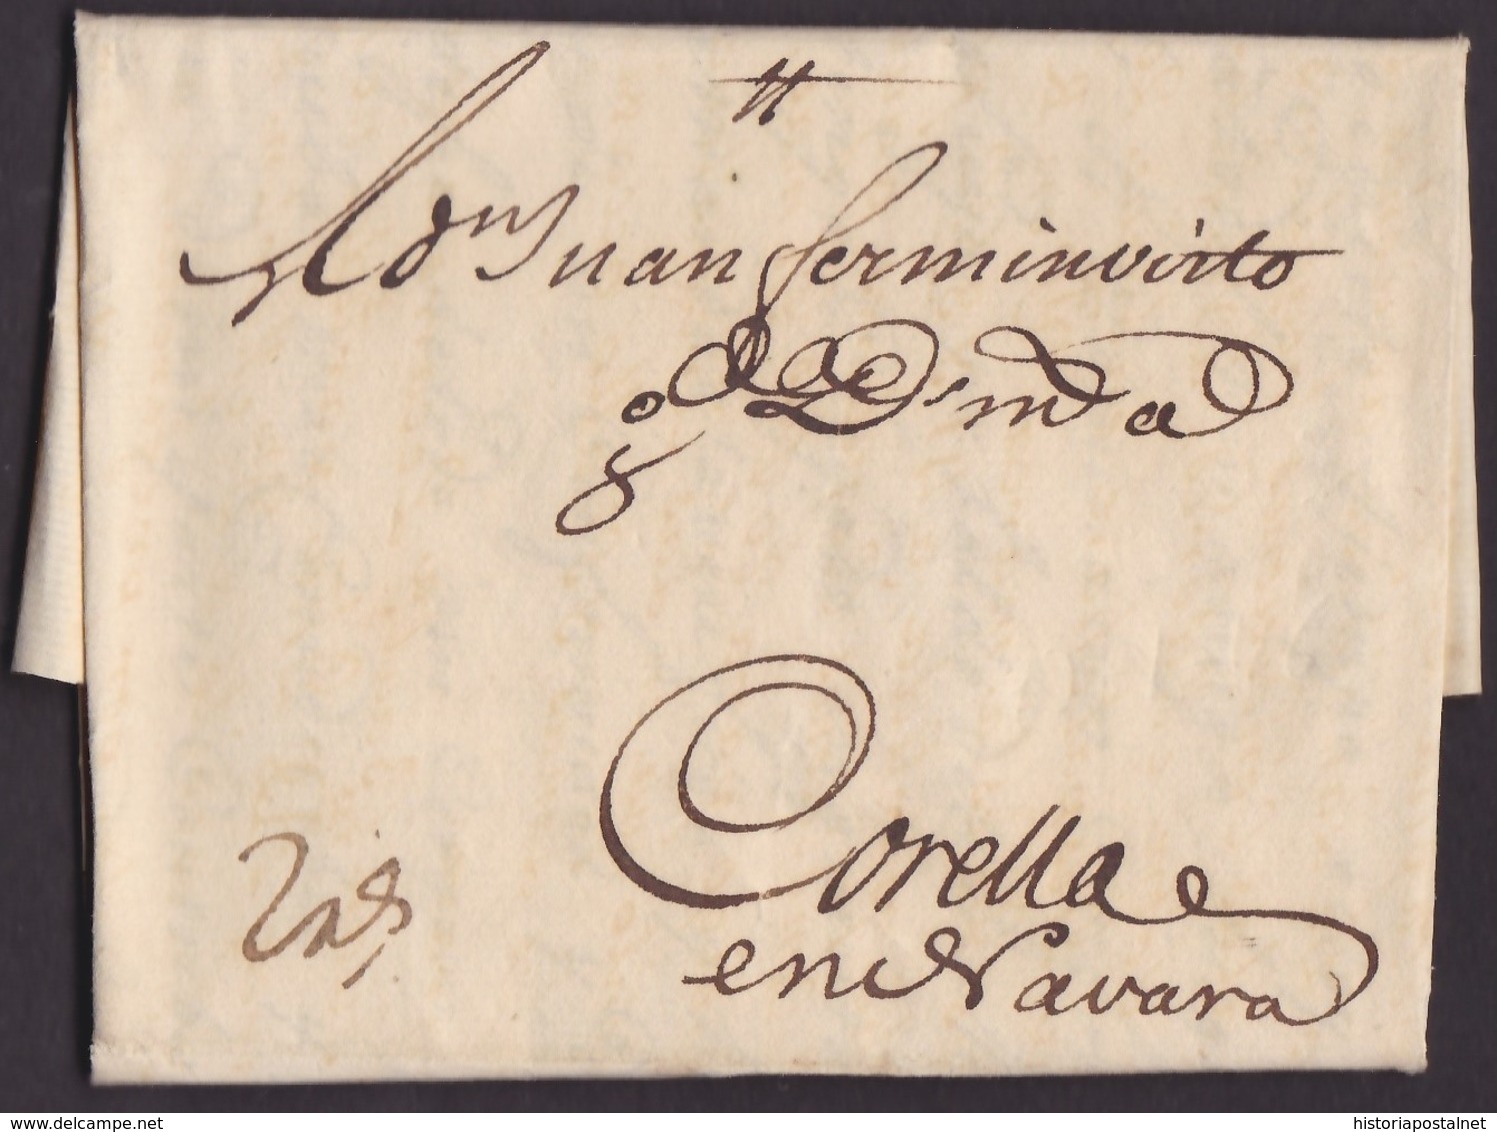 A dn Juan fermin virto
gde Ds md a
Corella
en Navara
© www.delcampe.net
historiapostalnet